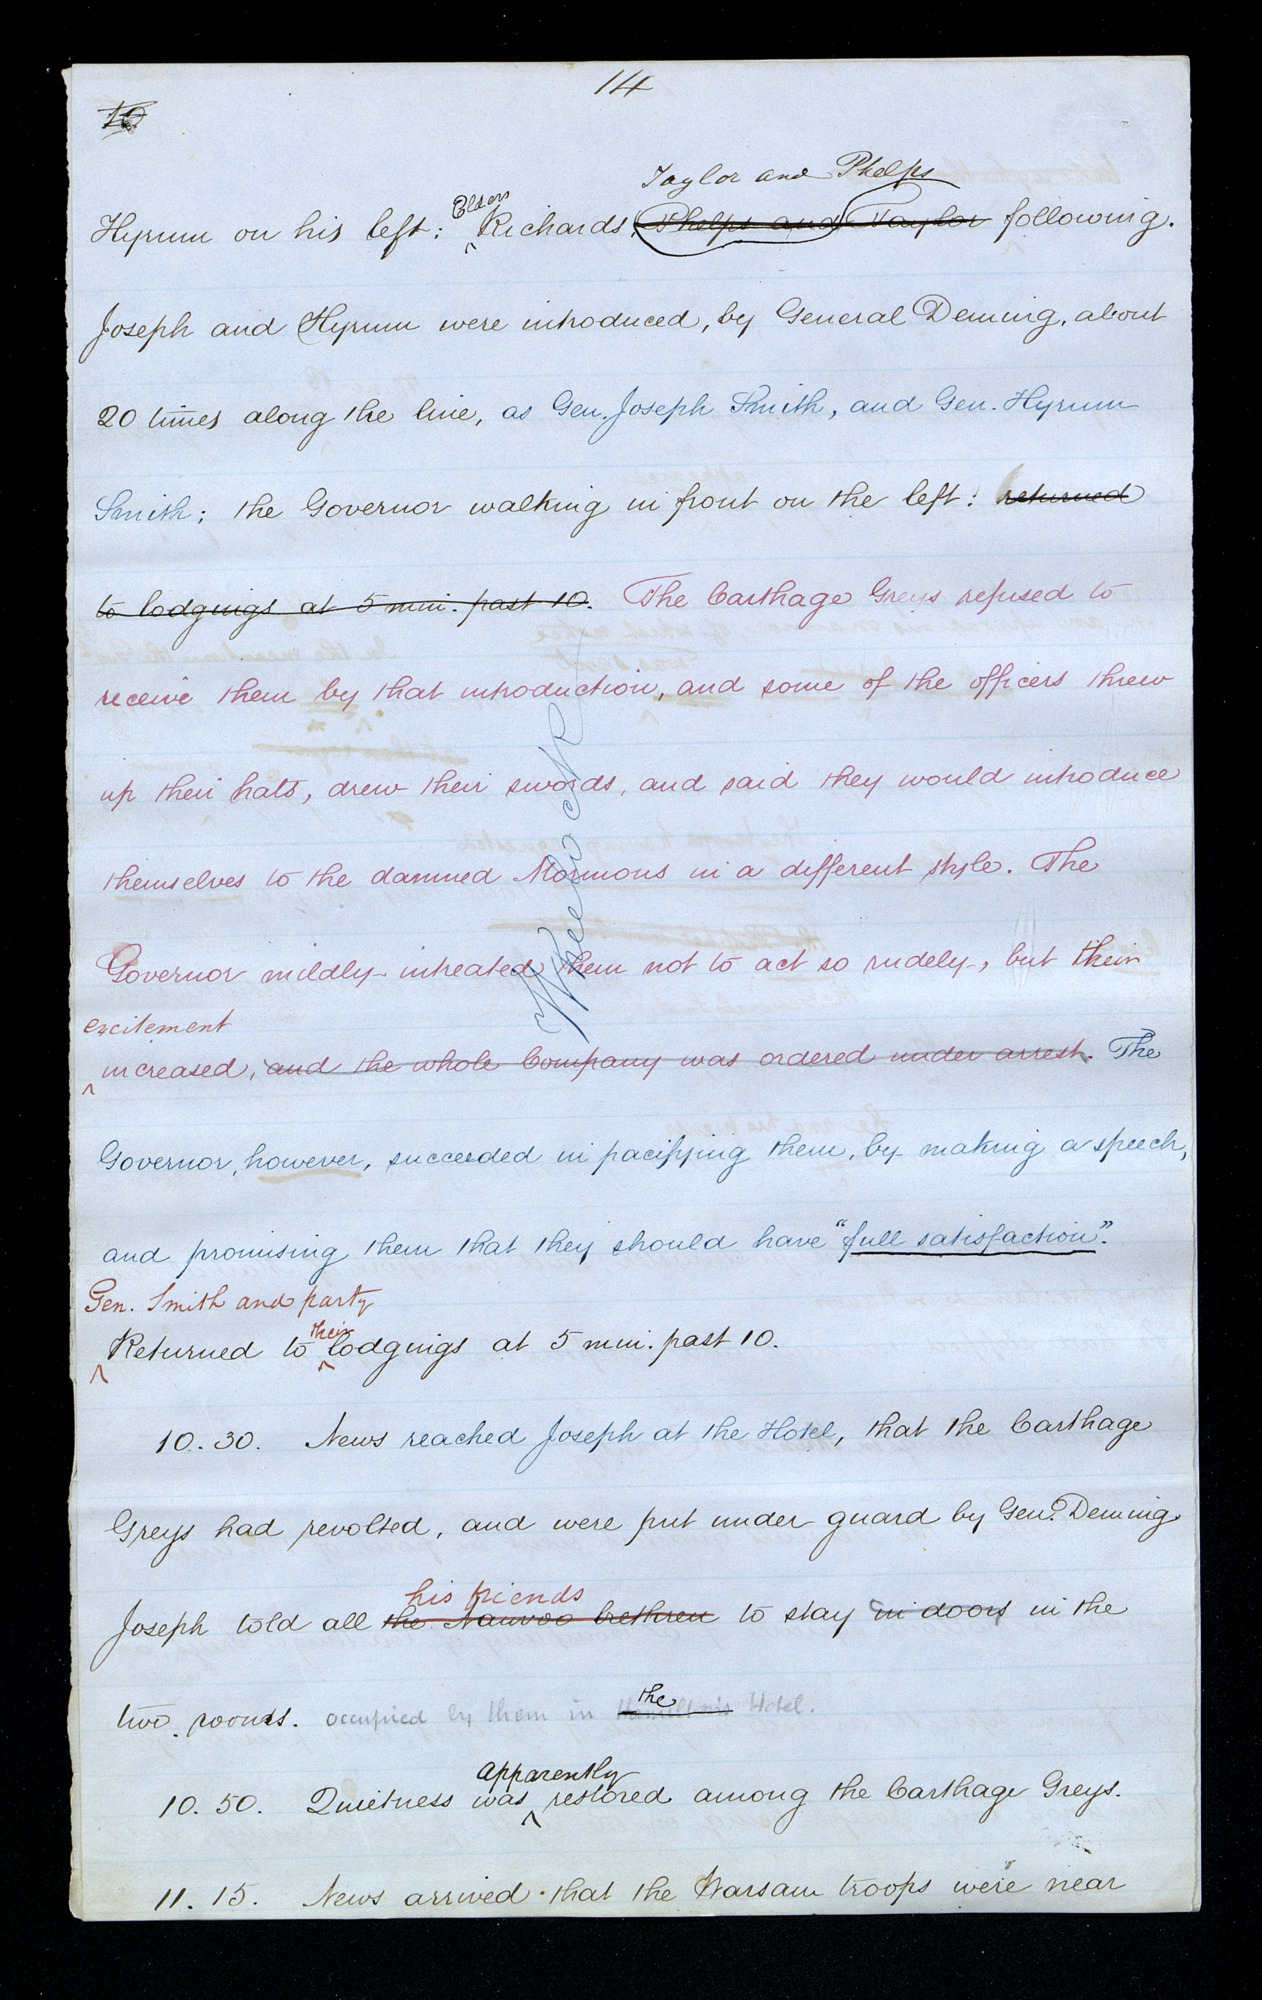 14
10
Taylor and Phelps
Elders
Hyrum on his left; Richards, Phelps and Taylor following.
Joseph and Hyrum were introduced, by General Deming, about
20 times along the line, as Gen. Joseph Smith, and Gen. Hyrum
Smith; the Governor walking in front on the left: returned
to lodgings at 5 min. past 10. The Carthage Greys refused to
receive them by that introduction, and some of the officers threw
up their hats, drew their swords, and said they would introduce
themselves to the damned Mormons in a different style. The
Governor mildly intreated them not to act so rudely, but their
excitement
increased, and the whole Company was ordered under arrest. The
Governor, however, succeeded in pacifying them, by making a speech,
and promising them that they should have "full satisfaction".
Gen. Smith and party
their
Returned to lodgings at 5 min. past 10.
10.30. News reached Joseph at the Hotel, that the Carthage
Greys had revolted, and were put under guard by Genl. Deming
his friends
Joseph told all the Nauvoo brethren to stay in doors in the
the
two rooms. occupied by them in Hamilton's Hotel.
apparently
10.50. Quietness was restored among the Carthage Greys.
11.15. News arrived that the Warsaw troops were near
Wheelock